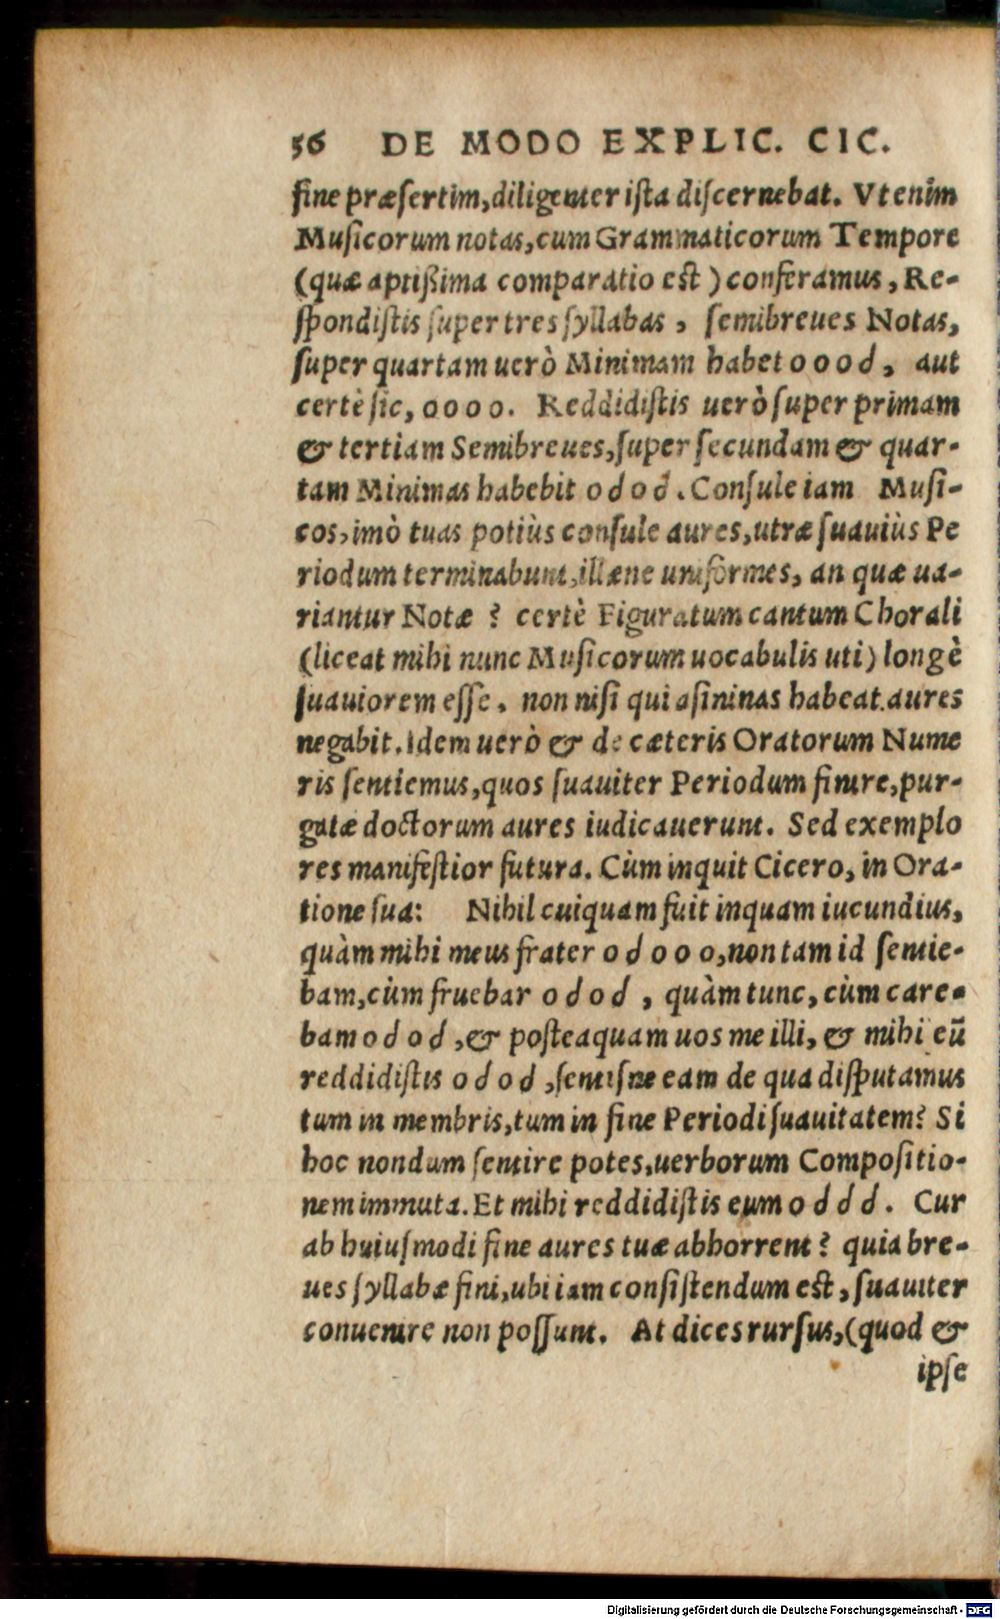 56 DE MODO EXPLIC. CIC.
ſine præſertim, diligenter iſta diſcernebat. Vt enim
Muſicorum notas, cum Grammaticorum Tempore
(quæ aptißima comparatio eſt) conferamus, Re-
ſpondiſtis ſuper tres ſyllabas, ſemibreues Notas,
ſuper quartam uerò Minimam habet o o o d, aut
certè ſic, o o o o. Reddidiſtis uerò ſuper primam
& tertiam Semibreues, ſuper ſecundam & quar-
tam Minimas habebit o d o d. Conſule iam Muſi-
cos, imò tuas potiùs conſule aures, utræ ſuauiùs Pe
riodum terminabunt, illæne uniformes, an quæ ua-
riantur Notæ? certè Figuratum cantum Chorali
(liceat mihi nunc Muſicorum uocabulis uti) longè
ſuauiorem eſſe, non niſi qui aſininas habeat aures
negabit. Idem uerò & de cæteris Oratorum Nume
ris ſentiemus, quos ſuauiter Periodum finire, pur-
gatæ doctorum aures iudicauerunt. Sed exemplo
res manifeſtior futura. Cùm inquit Cicero, in Ora-
tione ſua: Nihil cuiquam fuit inquam iucundius,
quàm mihi meus frater o d o o o, non tam id ſentie-
bam, cùm fruebar o d o d, quàm tunc, cùm care-
bam o d o d, & poſteaquam uos me illi, & mihi eũ
reddidiſtis o d o d, ſentiſne eam de qua diſputamus
tum in membris, tum in fine Periodi ſuauitatem? Si
hoc nondum ſentire potes, uerborum Compoſitio-
nem immuta. Et mihi reddidiſtis eum o d d d. Cur
ab huiuſmodi fine aures tuæ abhorrent? quia bre-
ues ſyllabæ fini, ubi iam conſiſtendum eſt, ſuauiter
conuenire non poſſunt. At dices rurſus, (quod &
ipſe
Digitalisierung gefördert durch die Deutsche Forschungsgemeinschaft - DFG